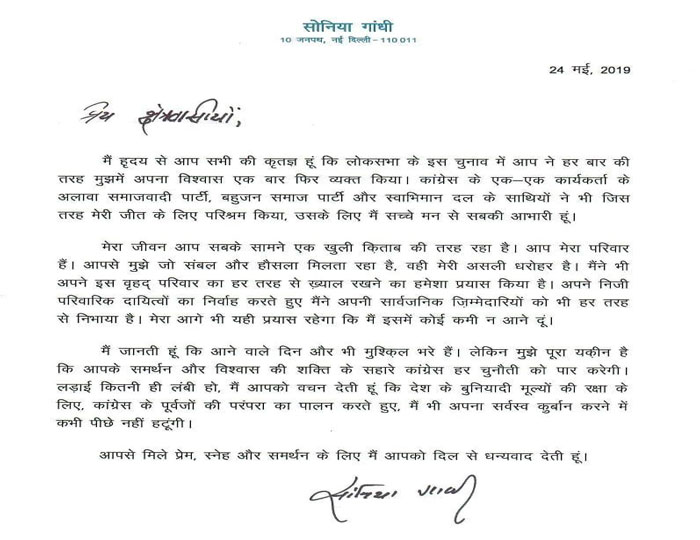 सोनिया गांधी
10 जनपथ, नई दिल्ली - 110 011
24 मई, 2019
प्रिय क्षेत्रवासियों,
मैं हृदय से आप सभी की कृतज्ञ हूं कि लोकसभा के इस चुनाव में आप ने हर बार की
तरह मुझमें अपना विश्वास एक बार फिर व्यक्त किया। कांग्रेस के एक–एक कार्यकर्ता के
अलावा समाजवादी पार्टी, बहुजन समाज पार्टी और स्वाभिमान दल के साथियों ने भी जिस
तरह मेरी जीत के लिए परिश्रम किया, उसके लिए मैं सच्चे मन से सबकी आभारी हूं।
मेरा जीवन आप सबके सामने एक खुली क़िताब की तरह रहा है। आप मेरा परिवार
हैं। आपसे मुझे जो संबल और हौसला मिलता रहा है, वही मेरी असली धरोहर है। मैंने भी
अपने इस वृहद् परिवार का हर तरह से ख़्याल रखने का हमेशा प्रयास किया है। अपने निजी
परिवारिक दायित्वों का निर्वाह करते हुए मैंने अपनी सार्वजनिक ज़िम्मेदारियों को भी हर तरह
से निभाया है। मेरा आगे भी यही प्रयास रहेगा कि मैं इसमें कोई कमी न आने दूं।
मैं जानती हूं कि आने वाले दिन और भी मुश्क़िल भरे हैं। लेकिन मुझे पूरा यक़ीन है
कि आपके समर्थन और विश्वास की शक्ति के सहारे कांग्रेस हर चुनौती को पार करेगी।
लड़ाई कितनी ही लंबी हो, मैं आपको वचन देती हूं कि देश के बुनियादी मूल्यों की रक्षा के
लिए, कांग्रेस के पूर्वजों की परंपरा का पालन करते हुए, मैं भी अपना सर्वस्व कुर्बान करने में
कभी पीछे नहीं हटूंगी।
आपसे मिले प्रेम, स्नेह और समर्थन के लिए मैं आपको दिल से धन्यवाद देती हूं।
सोनिया गांधी